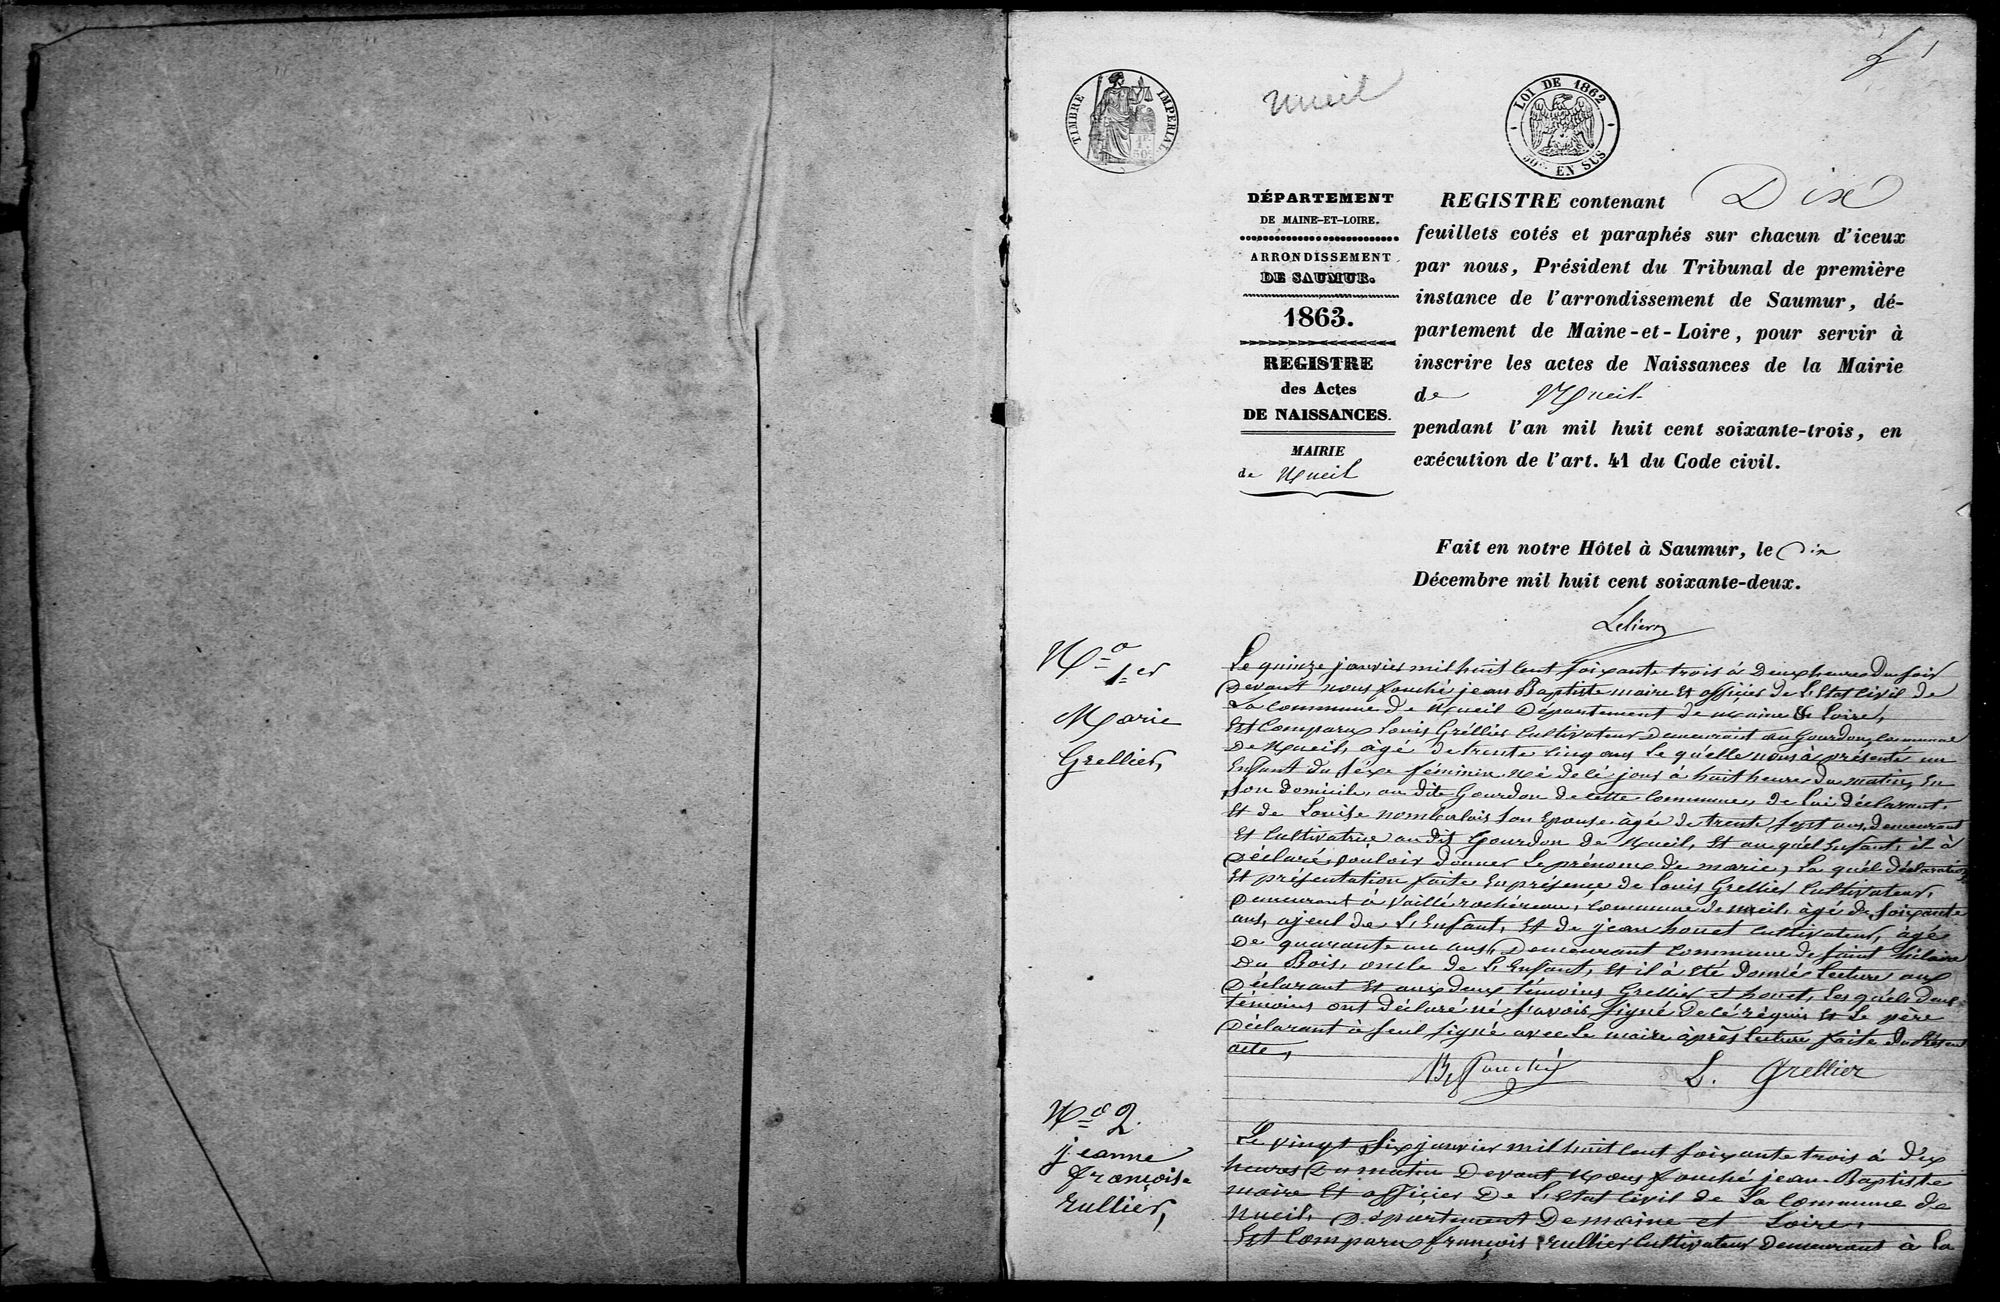 1
nueil
TIMBRE IMPERIAL
1F. 50C
LOI DE 1862
50C EN SUS
DÉPARTEMENT
DE MAINE-ET-LOIRE.
ARRONDISSEMENT
DE SAUMUR.
1863.
REGISTRE
des Actes
DE NAISSANCES.
MAIRIE
de Nueil
REGISTRE contenant Dix
feuillets cotés et paraphés sur chacun d'iceux
par nous, Président du Tribunal de première
instance de l'arrondissement de Saumur, dé-
partement de Maine-et-Loire, pour servir à
inscrire les actes de Naissances de la Mairie
de Nueil
pendant l'an mil huit cent soixante-trois, en
exécution de l'art. 41 du Code civil.
Fait en notre Hôtel à Saumur, le Dix
Décembre mil huit cent soixante-deux.
No 1er
Marie
Grellier,
Le quinze janvier mil huit cent soixante trois à Deux heures Du soir
Devant nous fouché jean Baptiste maire Et officier de L'Etat Civil de
La Commune De Nueil Département de maine Et Loire,
Est Comparu Louis Grellier Cultivateur Demeurant au Gourdon, Commune
De Nueil, âgé de trente cinq ans Le qu'elle nous à présenté un
Enfant du séxe féminin Né de cé jour à huit heure Du matin, En
son domicile, au dite Gourdon de cette Commune, de Lui déclarant,
Et de Louise son Epouse âgée de trente sept ans, demeurant
Et Cultivatrice au dit Gourdon de Nueil, Et au quél Enfant, il à
Déclaré vouloir donner Le prénom de marie, La quél déclaration
Et présentation faite En présence de Louis Grellier Cultivateur,
Demeurant à Vaillé rochéreau, Commune de nueil, âgé de soixante
ans, ajeul de L'Enfant, Et de jean houet Cultivateur, âgé
De quarante un ans, Demeurant Commune de saint hilaire
Du Bois, oncle de L'Enfant, Et il à été donné Lecture aux
Déclarant Et aux deux témoins Grellier et houet, Les quéls Deux
témoins ont déclaré né savoir signé De cé réquis Et Le père
Déclarant à seul signé avec Le maire àprès Lecture faite du Présent
acte,
B. Fouché L. Grellier
No 2.
jeanne
françoise
rullier,
Le vingt six janvier mil huit cent soixante trois à Dix
heures Du matin Devant Nous fouché jean Baptiste
maire Et officier De L'Etat Civil de La Commune de
Nueil, Département De maine et Loire,
Est Comparu françois rullier Cultivateur Demeurant à La